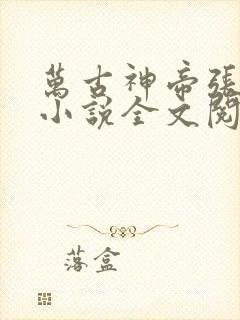 萬古神帝張
小說全文閱
落盒